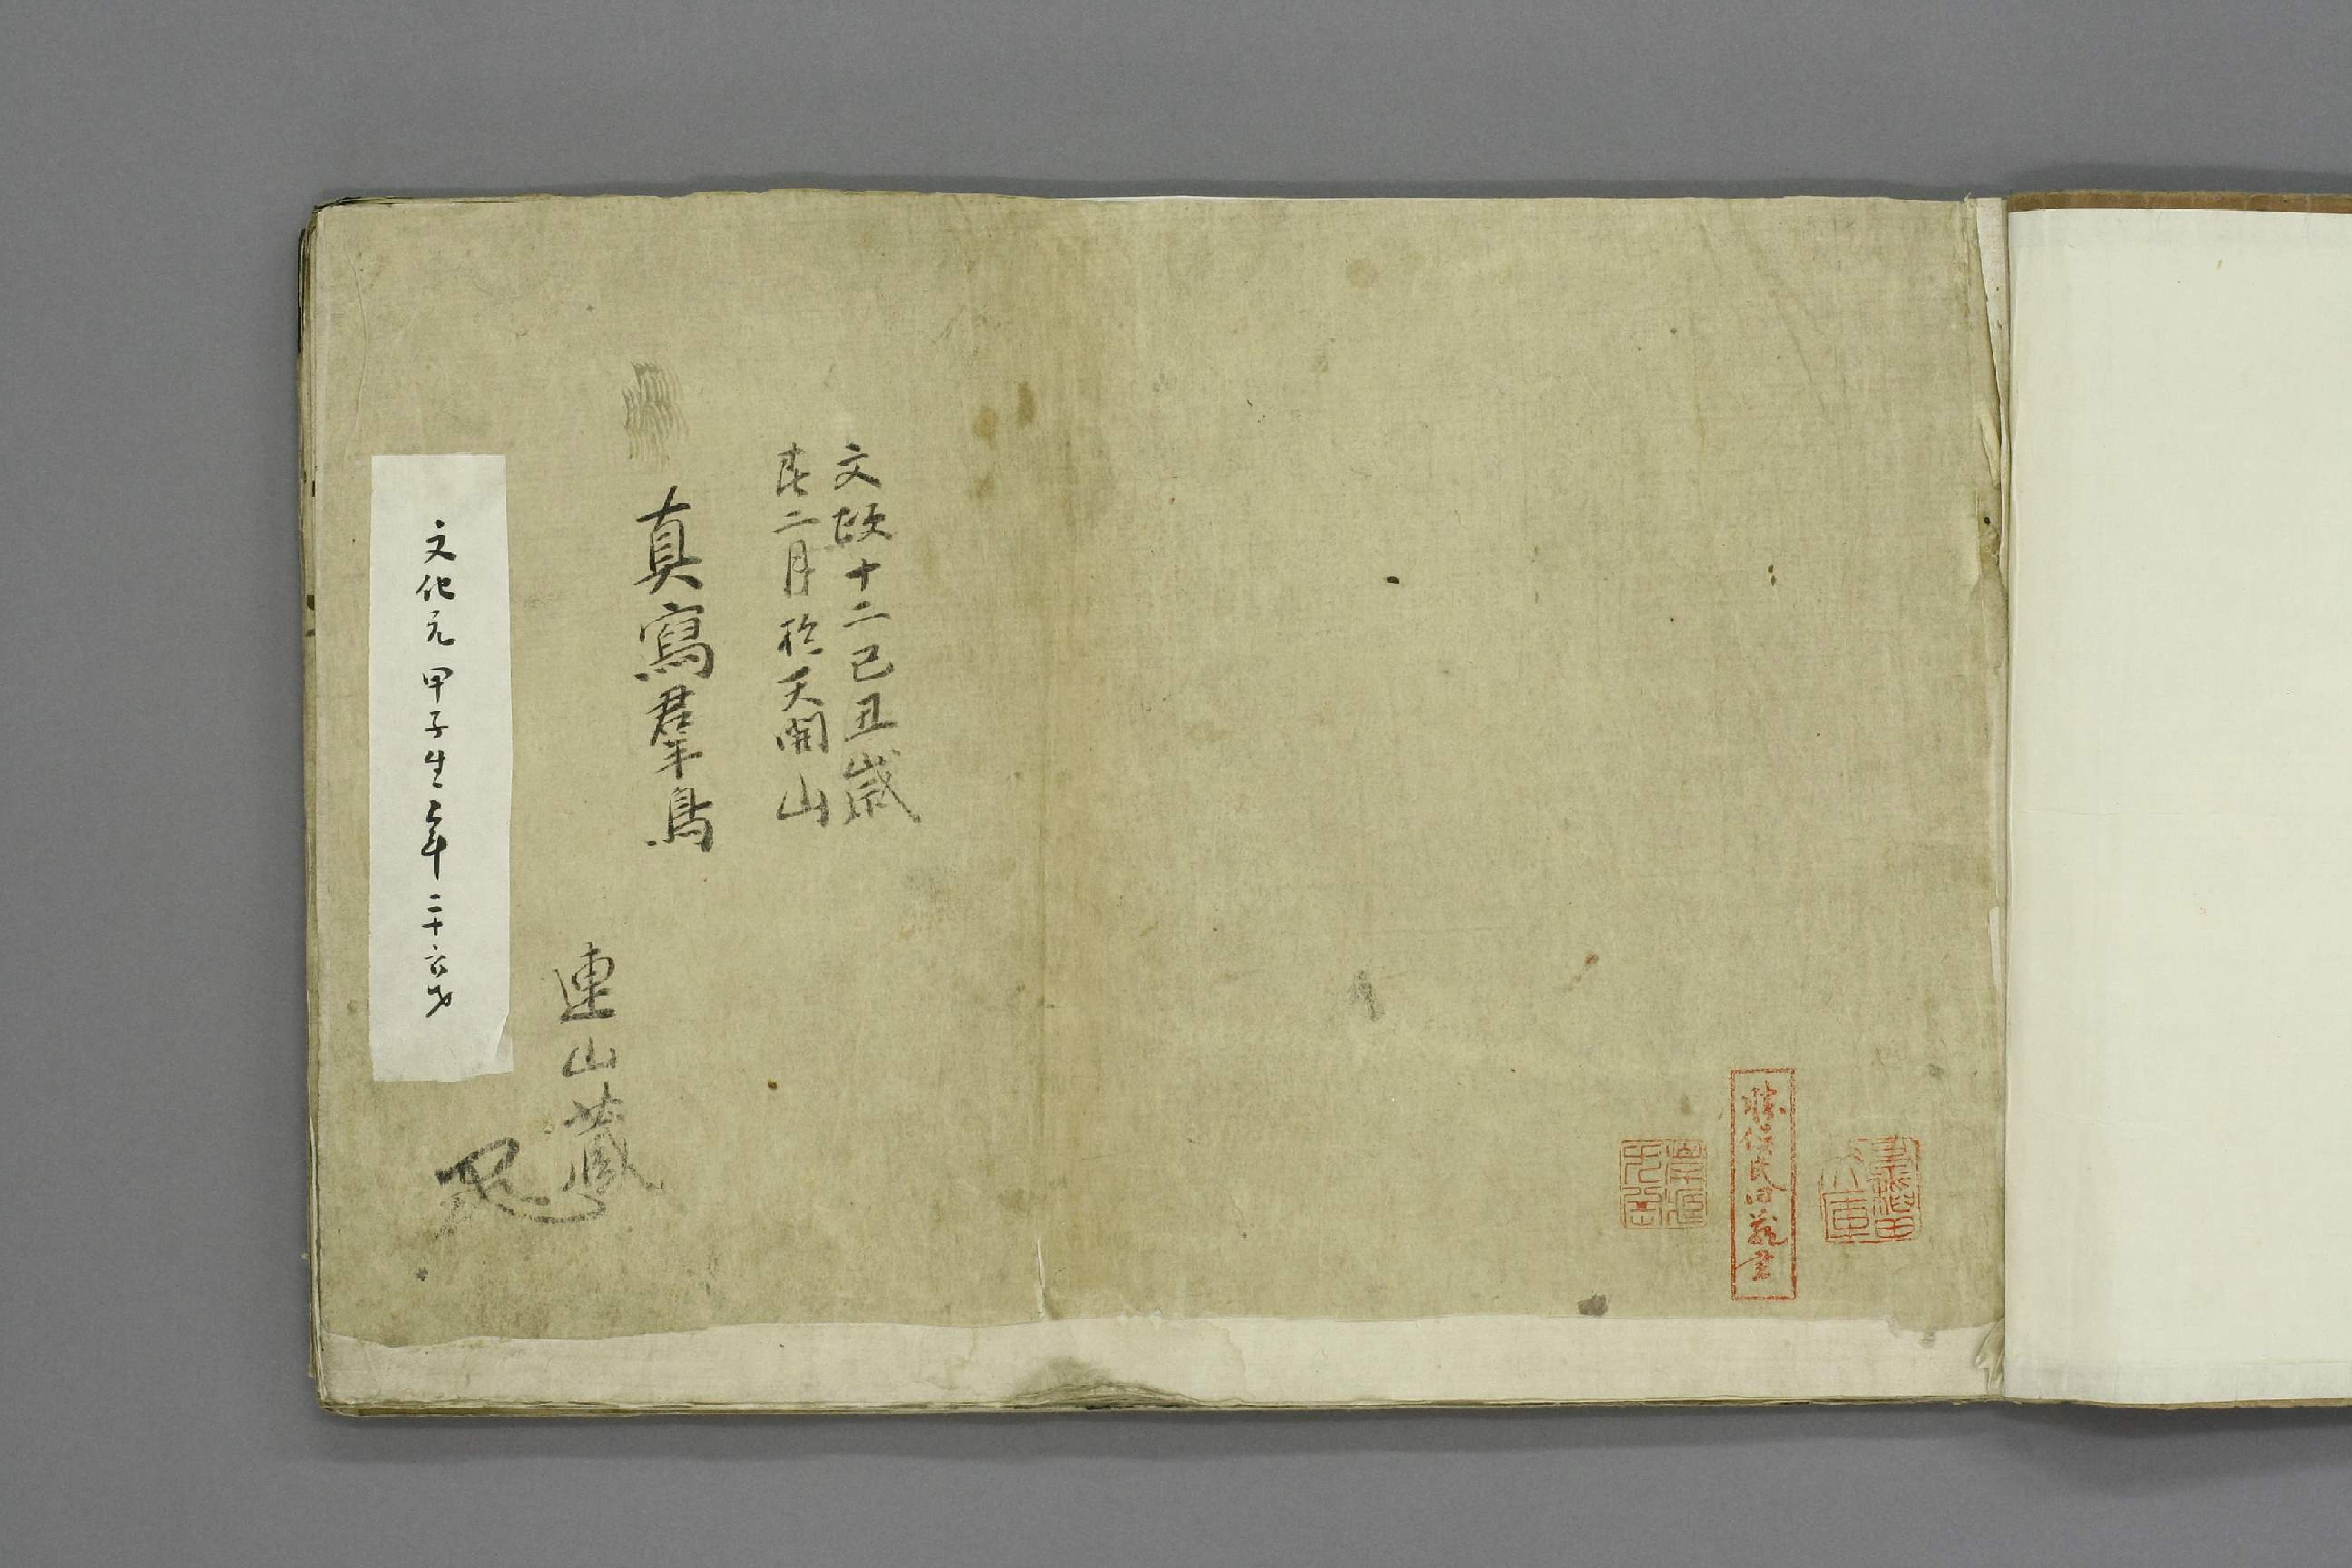 文政十二己丑歳
春二月於天開山
真寫羣鳥
連山藏
文化元甲子生年二十六才